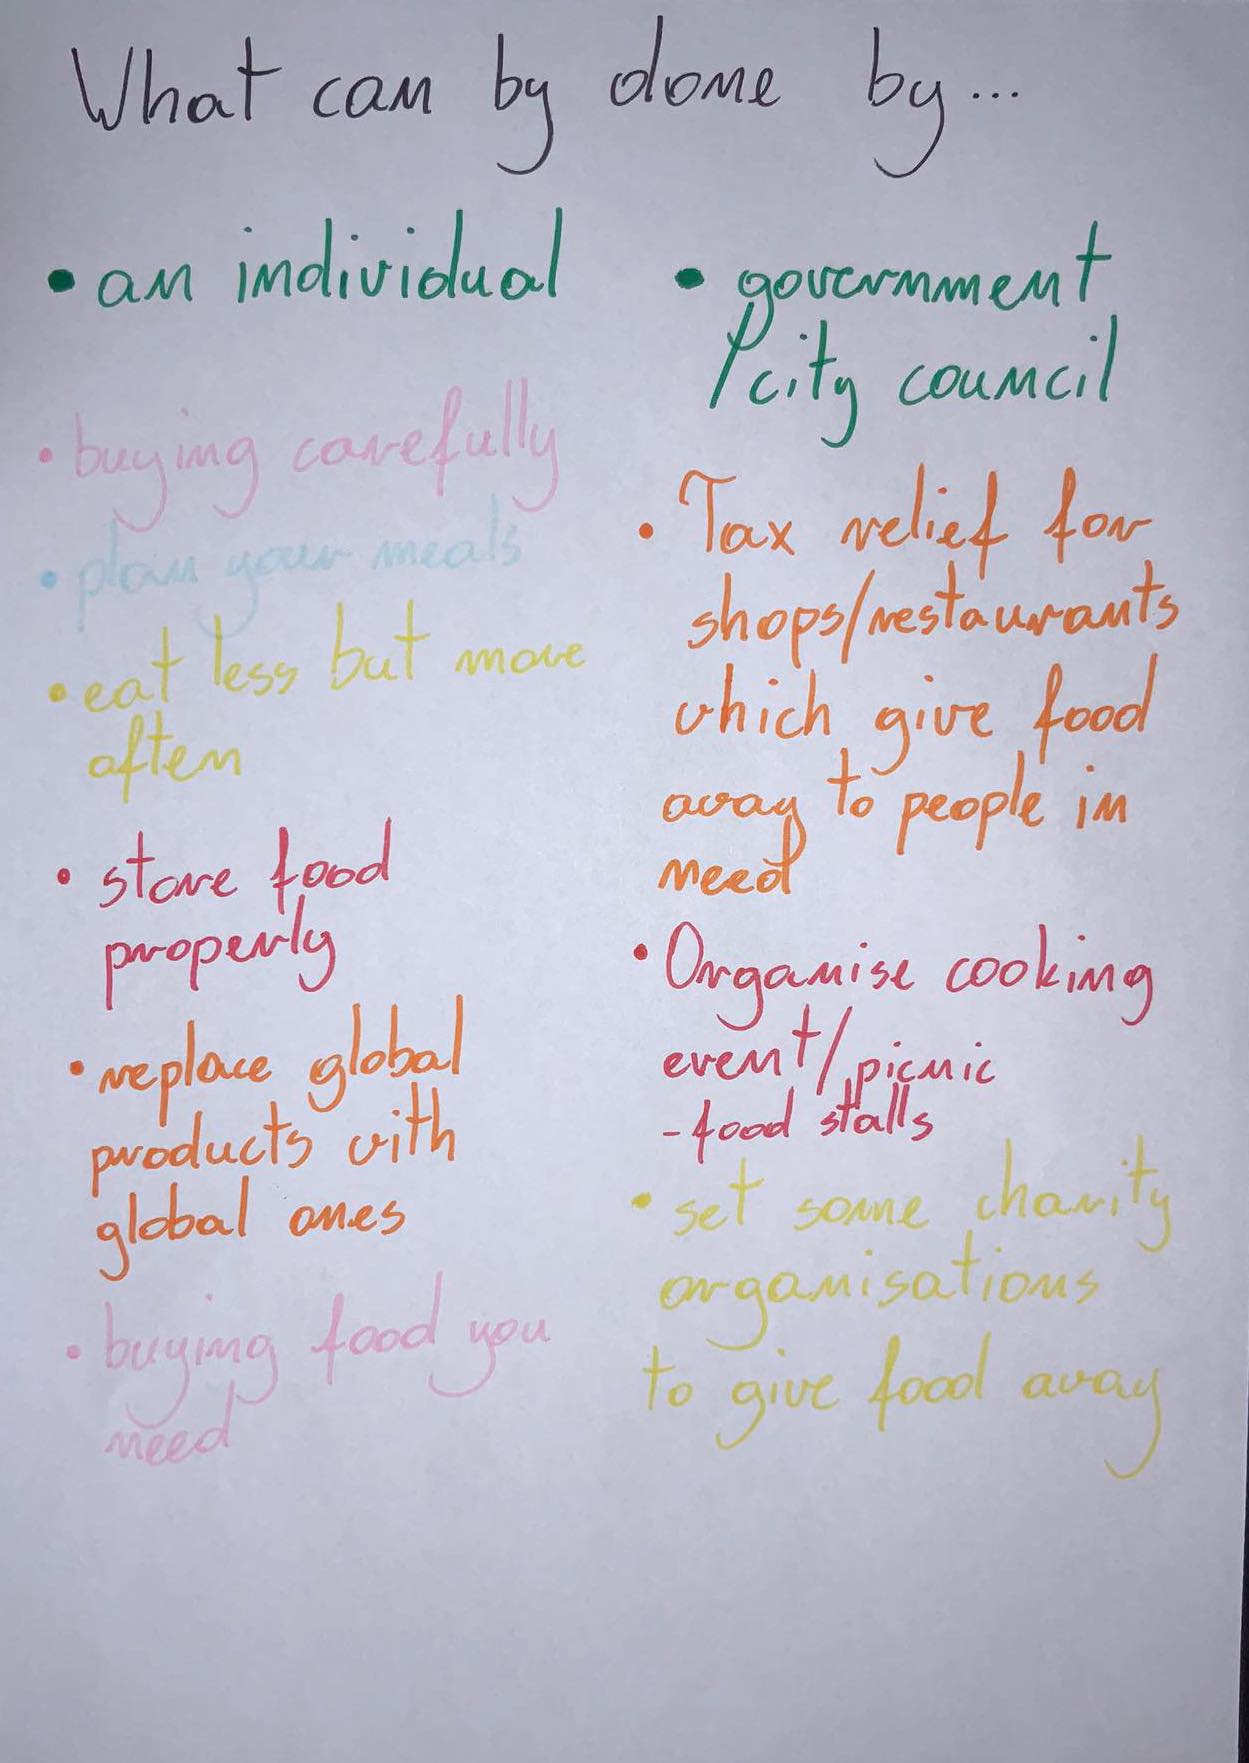 What can by done by...
• an individual
• buying carefully
• plan your meals
• eat less but more
often
• store food
properly
• replace global
products with
global ones
• buying food you
need
• government
/city council
• Tax relief for
shops/restaurants
which give food
away to people in
need
• Organise cooking
event/picnic
- food stalls
• set some charity
organisations
to give food away